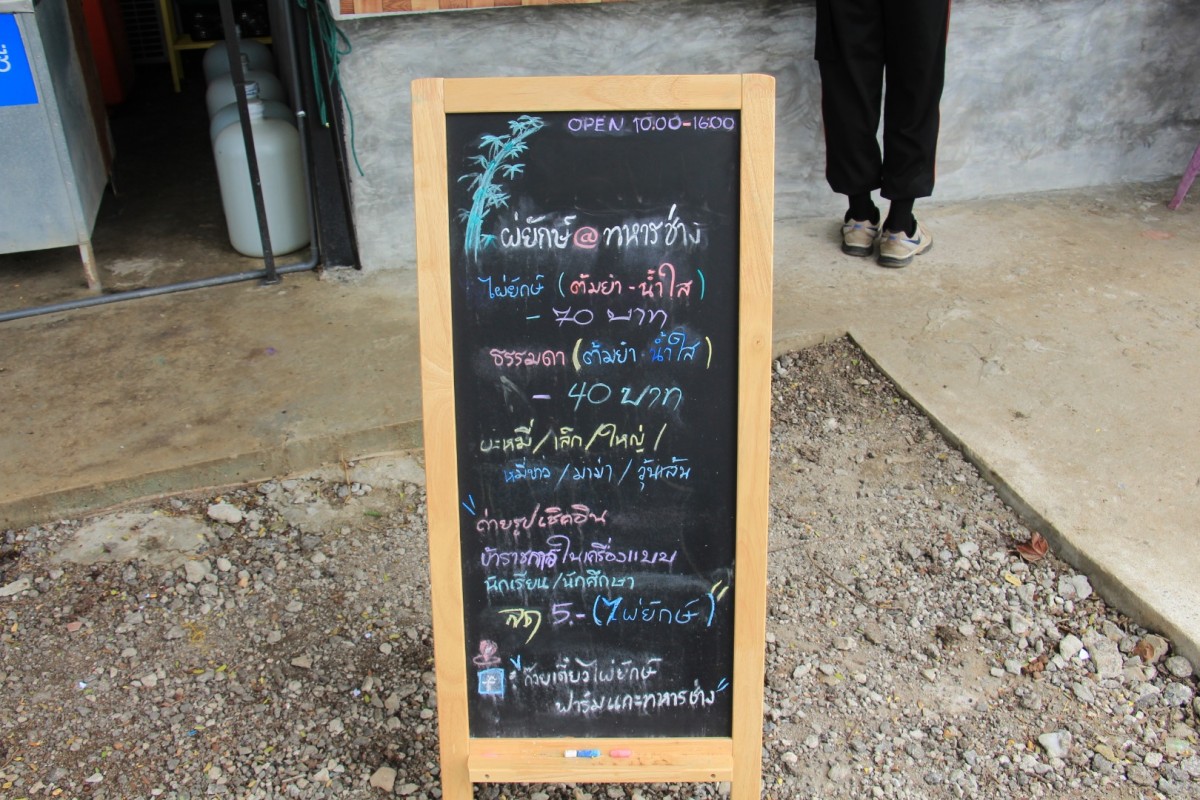 OPEN 10.00-16.00
ไผ่ยักษ์ @ ทหารช่าง
ไผ่ยักษ์ (ต้มยำ - น้ำใส)
- 70 บาท
ธรรมดา (ต้มยำ น้ำใส)
- 40 บาท
บะหมี่ / เล็ก / ใหญ่ /
หมี่ขาว / มาม่า / วุ้นเส้น
"ถ่ายรูปเช็คอิน
ข้าราชการในเครื่องแบบ
นักเรียน/นักศึกษา
ลด 5.- (ไผ่ยักษ์)"
: "ก๋วยเตี๋ยวไผ่ยักษ์
ฟาร์มแกะทหารช่าง"